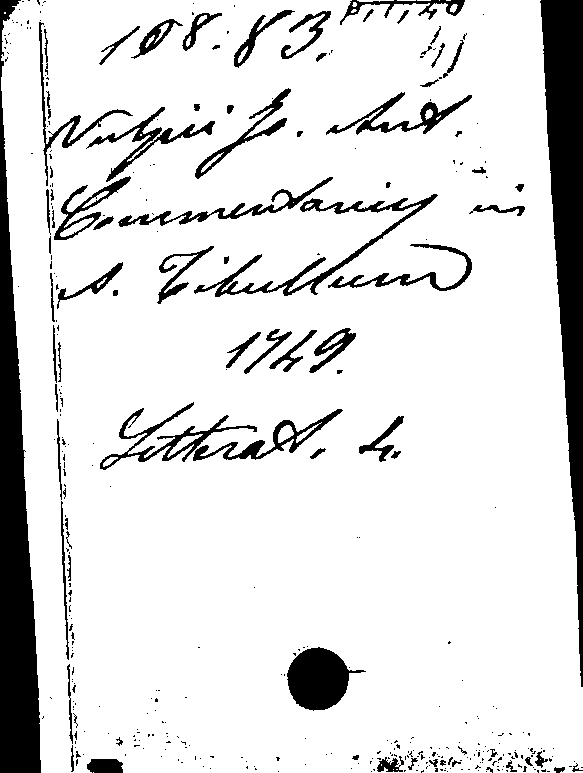 108.83.
Vulpii Jo. Ant.
Commentarius in
A. Tibullum
1749.
Litterat. 4.